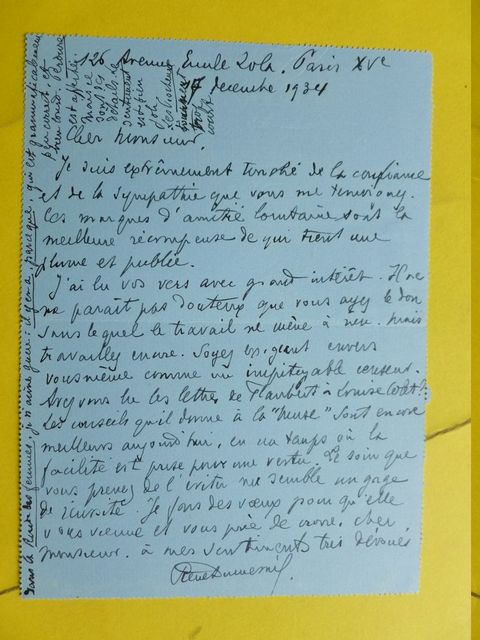 126 Avenue Emile Zola. Paris XVe
7 décembre 1934
Cher Monsieur,
Je suis extrêmement touché de la confiance
et de la sympathie que vous me témoignez.
Ces marques d'amitié lointaine sont la
meilleure récompense de qui tient une
plume et publie.
J'ai lu vos vers avec grand intérêt. Il ne
me paraît pas douteux que vous ayez le don
sans lequel le travail ne mène à rien. Mais
travaillez encore. Soyez exigeant envers
vous même comme un impitoyable censeur.
Avez vous lu les lettres de Flaubert à Louise Colet?
Les conseils qu'il donne à la "Muse" sont encore
meilleurs aujourd'hui, en un temps où la
facilité est prise pour une vertu. Le soin que
vous prenez de l'éviter me semble un gage
de réussite. Je fais des vœux pour qu'elle
vous vienne et vous prie de croire, cher
Monsieur, à mes sentiments très dévoués
René Dumesnil
Dans la des femmes, je n'aime guère : il y en a, parce que, qui est grammaticalement
peu correct et
bien lourd.
est
mais ce
sont des
détails. Le
sentiment
est bien
joli